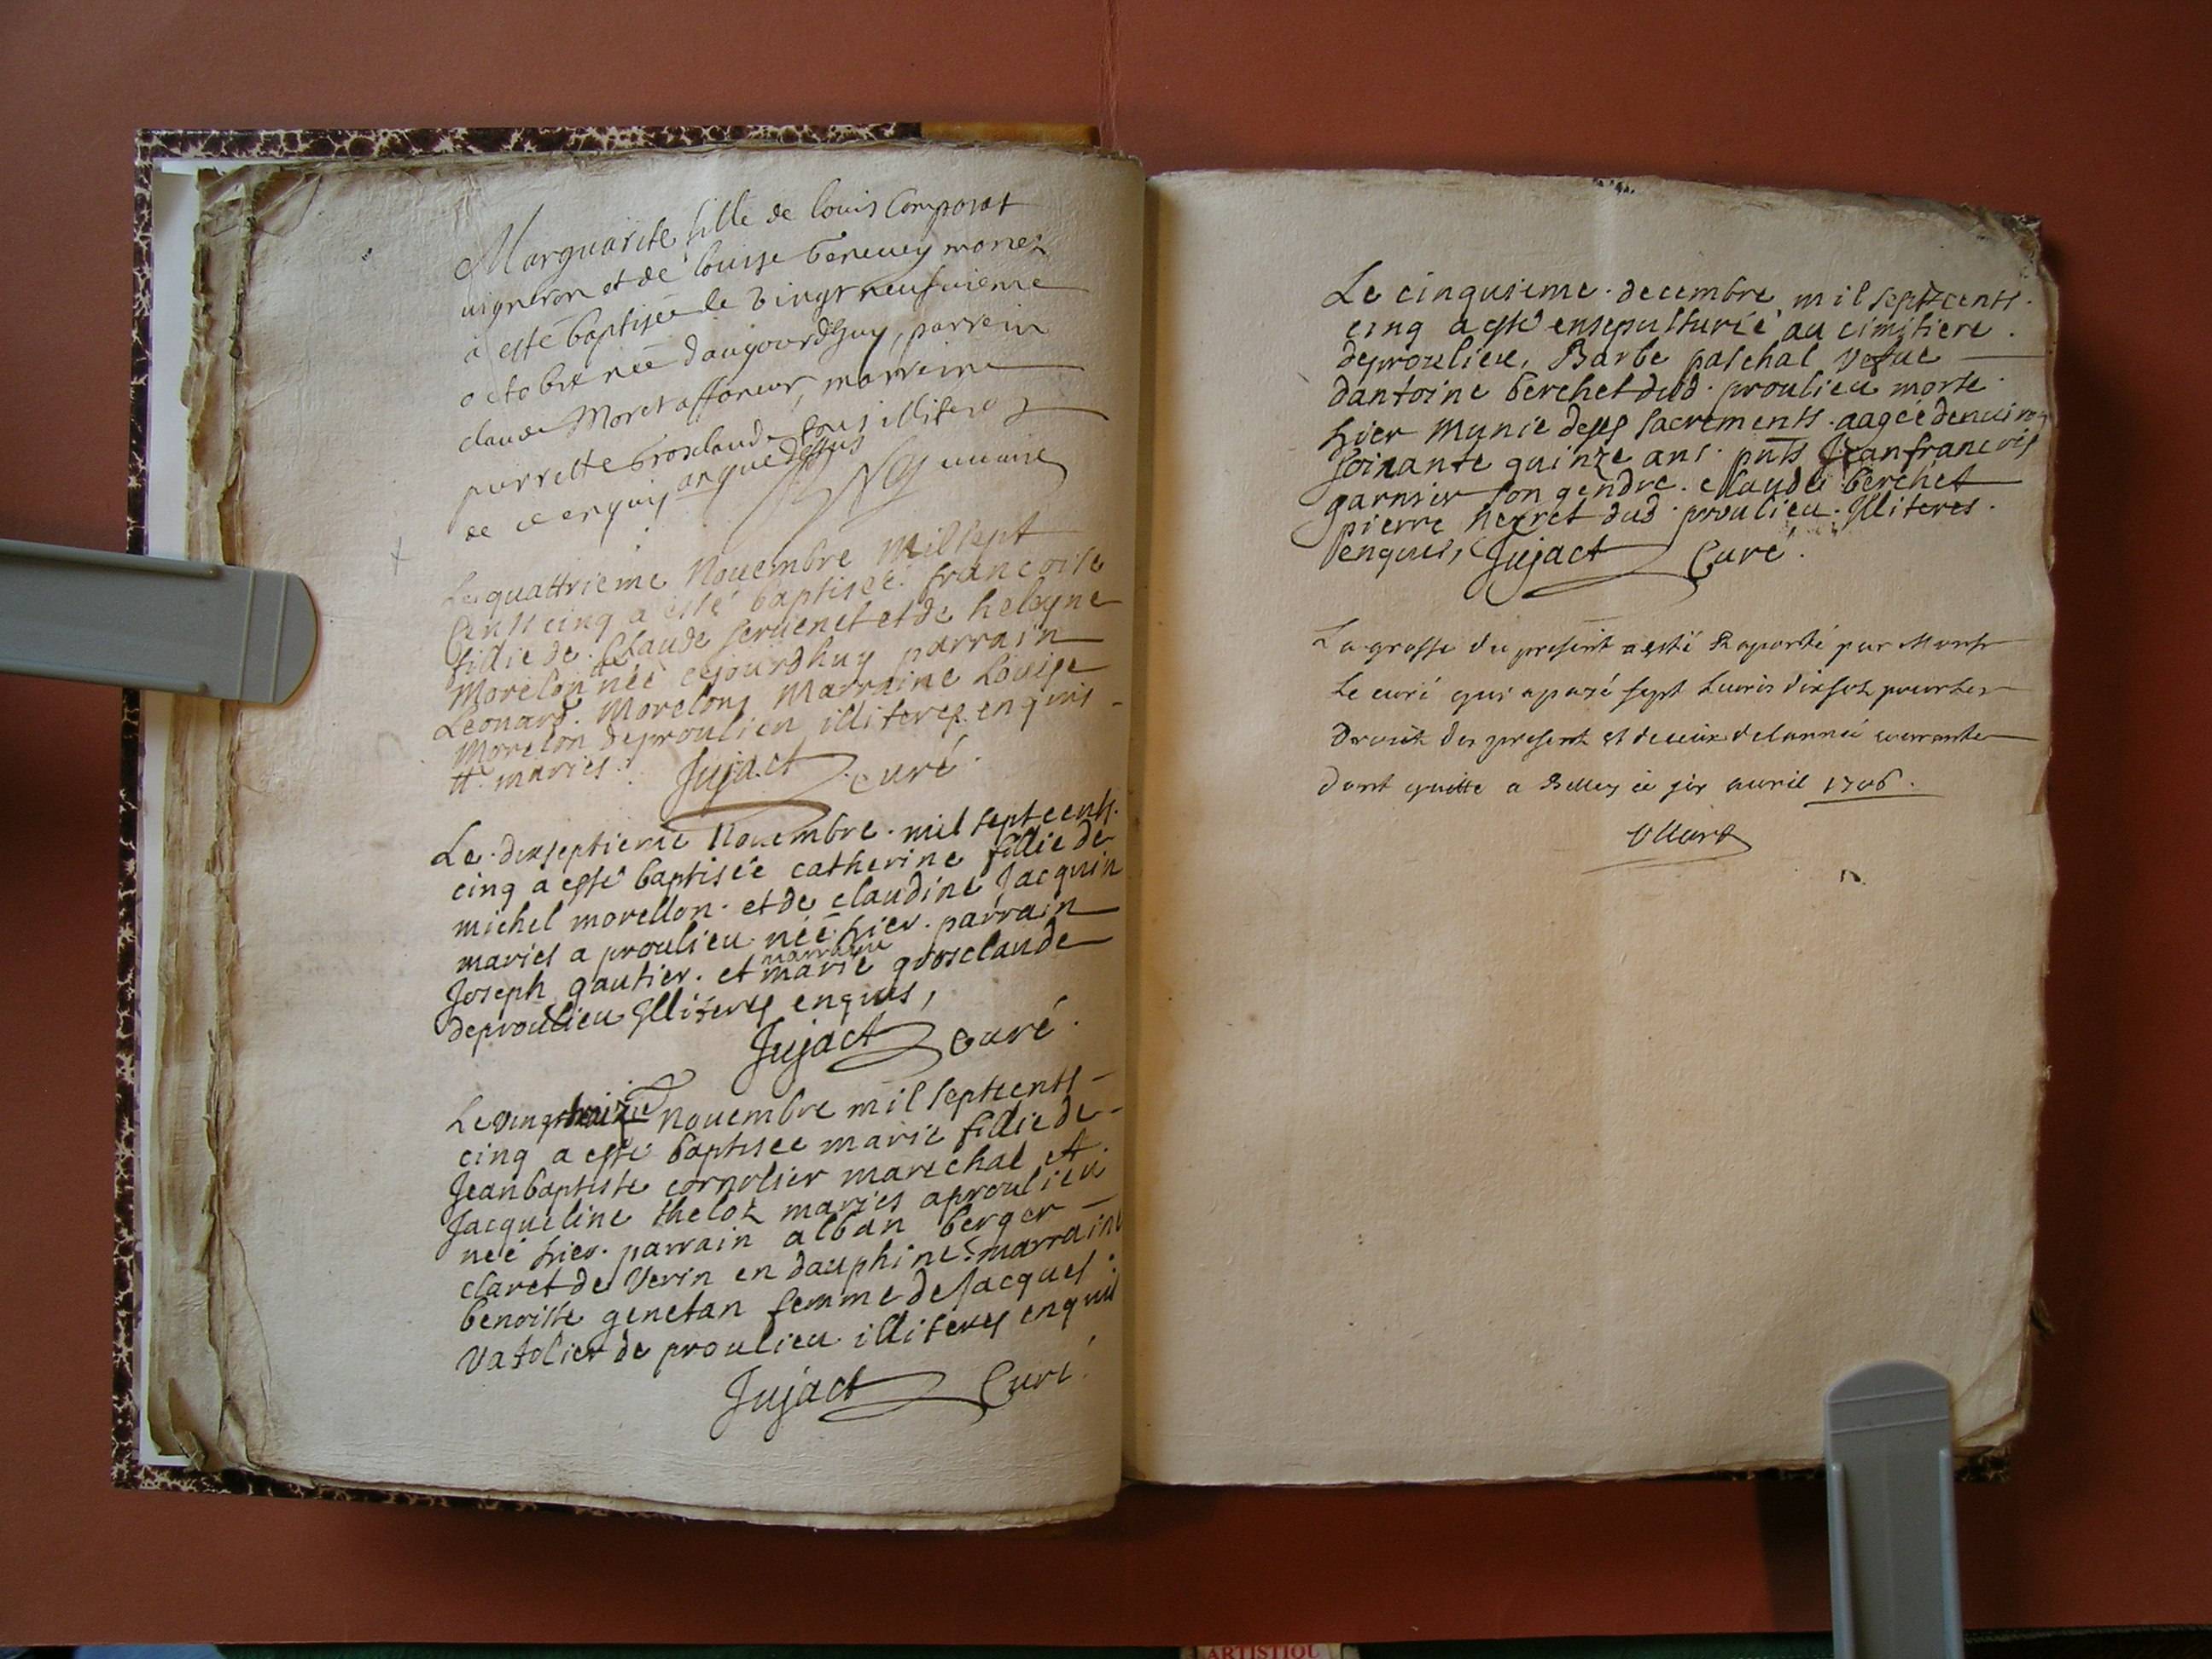 Marguarite fille de louis Comparat
uigneron et de louise beneuey mariez
a esté baptisée le vingt neufuieme
octobre née daujourdhuy, parrein
claude Moret affaneur, marreine
perrette grosclaude tous illiteres
de ce enquis an que dessus
Le quattrieme Nouembre Mil sept
Cents cinq a esté baptiseé francoise
fillie de Claude seruenet et de heleyne
Morelon tt née cejourdhuy parrain
Leonard Morelons Marraine Louise
Morelon de proulieu illiteres enquis
tt mariés. Jujact curé.
Le dixseptieme Nouembre mil sept cents
cinq a esté baptisée catherine fillie de
michel morellon et de claudine Jacquin
mariés a proulieu née hier. parrain
Joseph gautier. et marraine marie grosclaude
de proulieu Illiteres enquis,
Jujact Curé.
Le vingt Nouembre mil sept cents
cinq a esté baptisee marie fillie de
Jean baptiste cornolier marechal et
Jacqueline theloz mariés a proulieu
neé hier. parrain alban berger
claret de Verin en dauphiné. marraine
benoiste genetan femme de Jacques
Vatolier de proulieu illiteres enquis
Jujact Curé.
Le cinquieme decembre mil sept cents
cinq a esté ensepulturée au cimitiere
de proulieu, Barbe paschal vefue
dantoine berchet dud. proulieu morte
hier Munie deses sacrements aagée denuiron
soixante quinze ans. pnts Jean francois
garnier son gendre. claude berchet
pierre neyret dud. proulieu. Illiteres
enquis, Jujact Curé.
La grosse du present a esté Raporté par Monsr
le curé qui a payé sept Liures dix solz pour les
Droits du present et deceux delannée courante
dont quitte a Belley ce six auril 1706.